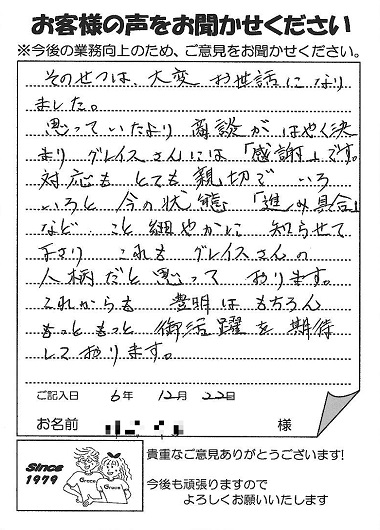 お客様の声をお聞かせください
※今後の業務向上のため、ご意見をお聞かせください。
そのせつは、大変お世話になり
ました。
思っていたより商談がはやく決
まりグレイスさんには「感謝」です。
対応もとても親切でいろ
いろと今の状態「進み具合」
など…こと細やかに知らせて
下さりこれもグレイスさんの
人柄だと思っております。
これからも豊明はもちろん
もっともっと御活躍を期待
しております。
ご記入日 6年 12月 22日
お名前 様
Since
1979
Grace
Grace
貴重なご意見ありがとうございます!
今後も頑張りますので
よろしくお願いいたします